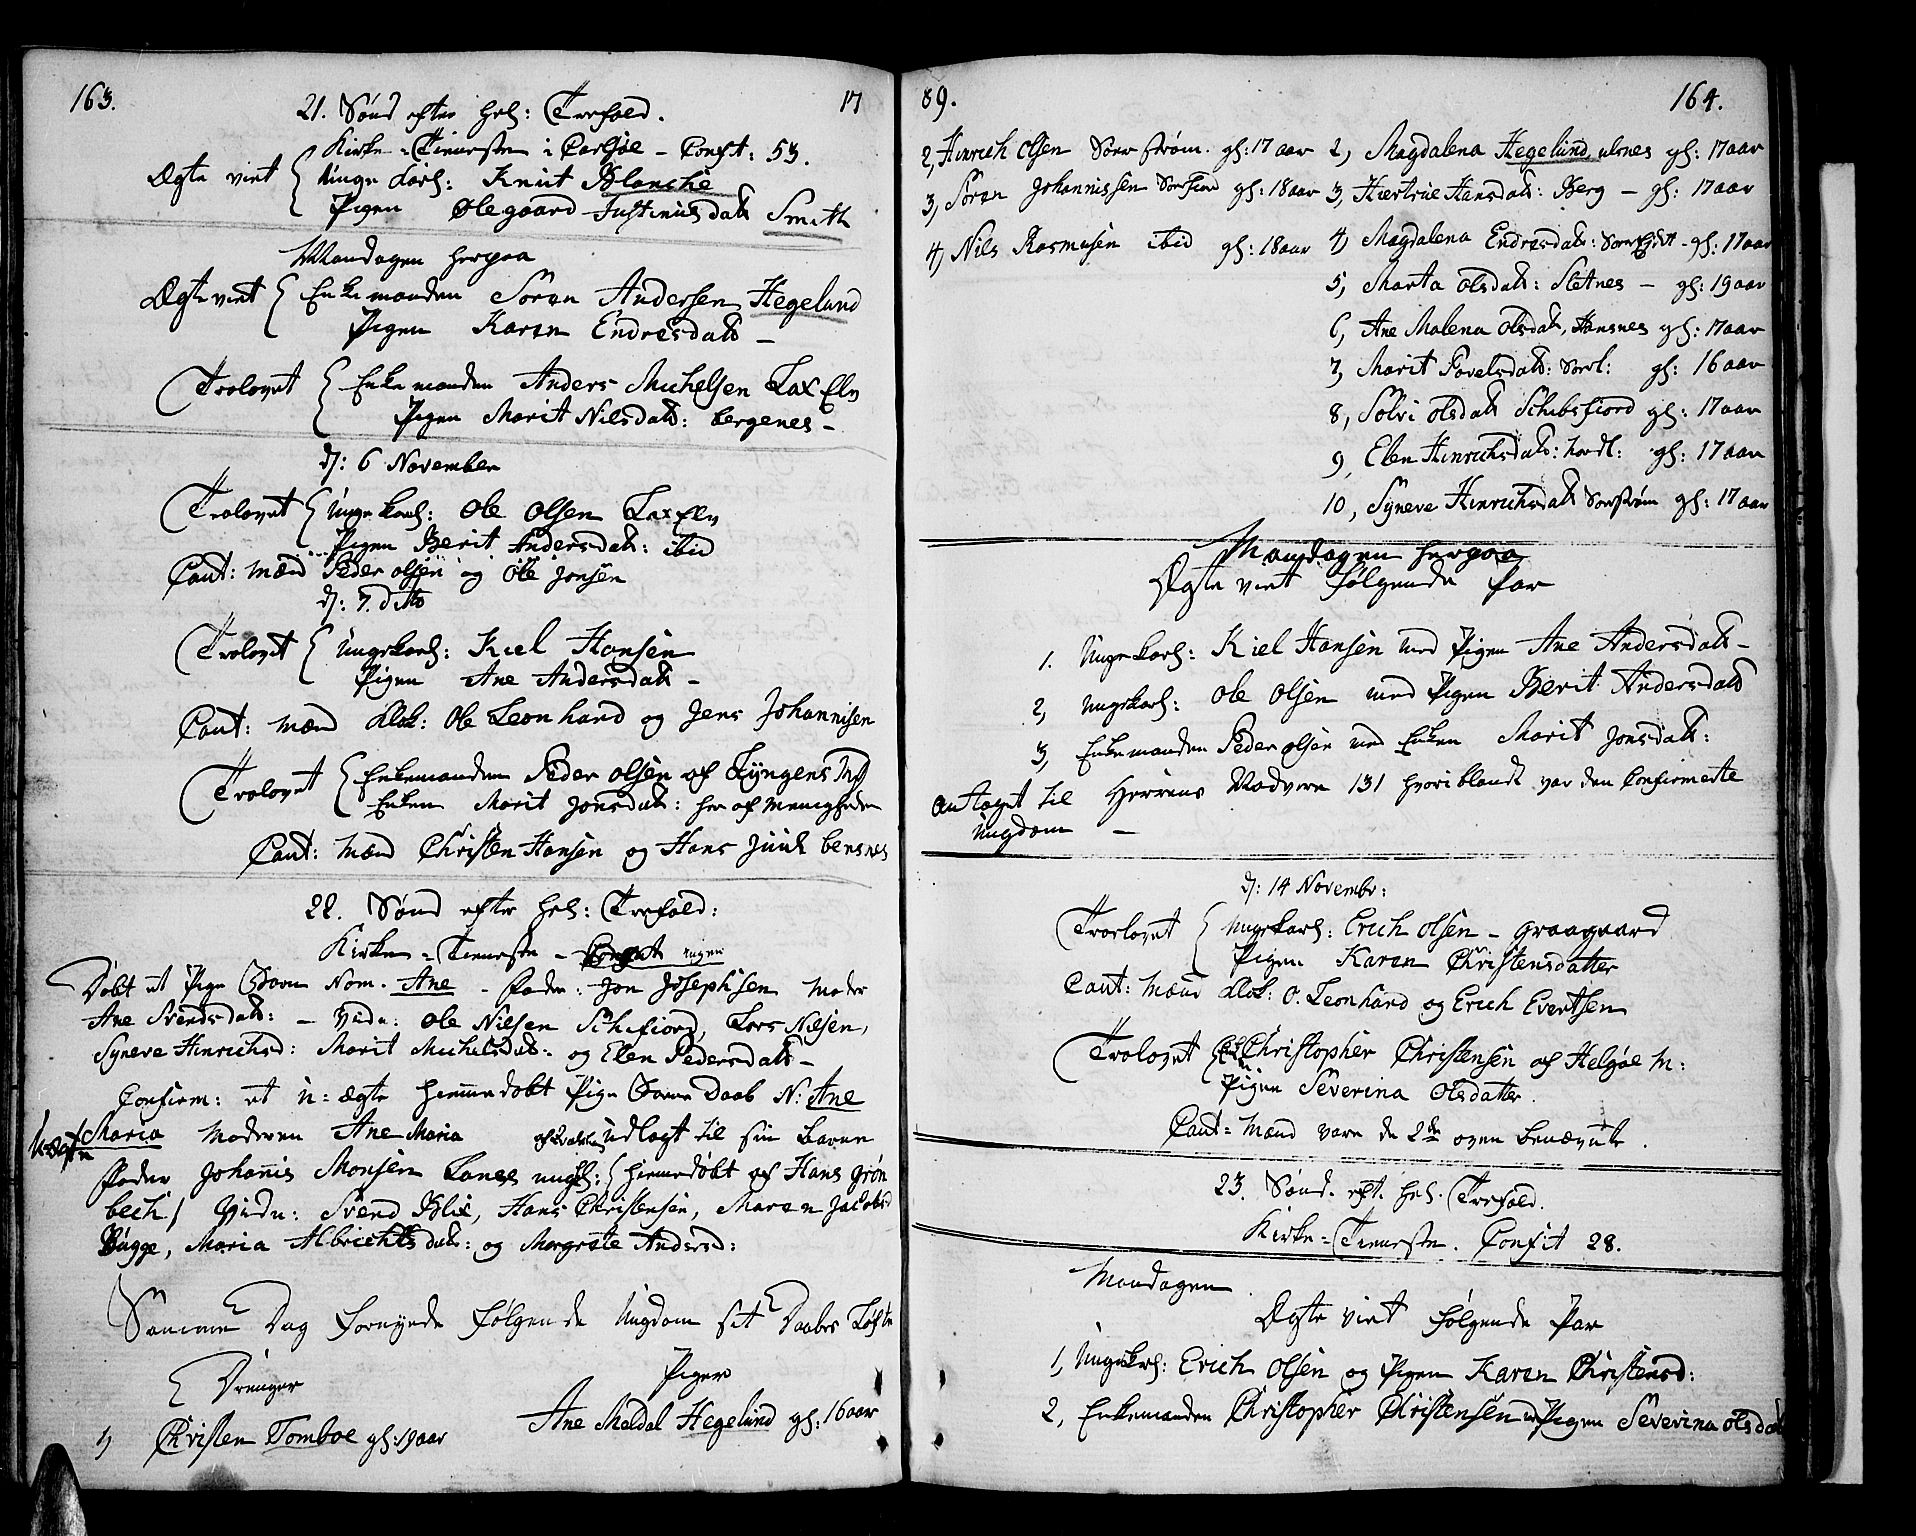 163. 17
21. Sønd efter hel: Trefold.
Kirke-Tieneste i Carlsøe - Confit: 53.
Ægte viet Unge Karl: Knut Blanche
Pigen Olegaard Justinusdatt Smith
Mandagen herpaa
Ægte viet Enkemanden Sören Andersen Hegelund
Pigen Karen Endresdatt -
Trolovet Enkemanden Anders Michelsen Lax Elv
Pigen Marit Nilsdatt: bergenes -
d: 6 November
Trolovet Ungekarl: Ole Olsen Lax Elv
Pigen Berit Andersdatt: ibid
Caut: Mænd Peder Olsen og Ole Jonsen
d: 7. dito
Trolovet Ungekarl: Kiel Hansen
Pigen Ane Andersdatt -
Caut: Mænd Klok: Ole Leonhard og Jens Johannisen
Trolovet Enkemanden Peder Olsen af Lyngens
Enken Marit Jonsdatt: her af Menigheden
Caut: Mænd Christen Hansen og Hans Juul bensnes
22. Sønd efter hel: Trefold:
Kirke-Tieneste - Confit ingen
Døbt et Pige Barn Nom. Ane - Fader: Jon Josephsen Moder
Ane Svendsdatt: - Vidn: Ole Nilsen Schifiord, Lars Nilsen,
Syneve Hinrichsd: Marit Michelsdatt: og Elen Pedersdatt -
Confirm: et u-ægte hiemmedøbt Pige Barns Daab N: Ane
Maria Moderen Ane Maria udlagt til sin Barne
Fader Johannis Monsen Lanes ungk: hiemedøbt af Hans Grøn
bech / Vidn: Svend Blix, Hans Christensen, Maren Jacobsd
Bugge, Maria Albrichtsdatt: og Margrete Andersd:
Samme Dag fornyede følgende Ungdom sit Daabes Løfte
Drenger Piger
1) Christen Tomboe gl: 19 aar Ane Meldal Hegelund gl: 16 aar
89. 164.
2, Hinrich Olsen Sørstrøm. gl: 17 aar 2, Magdalena Hegelund ulsnes gl: 17 aar
3, Sören Johannissen Sorfiord gl: 18 aar 3, Hertrie Hansdatt: Berg - gl: 17 aar
4, Nils Rasmusen ibid gl: 18 aar 4, Magdalena Endresdatt: Sorfiord - gl: 17 aar
5, Marta Olsdatt: Sletnes - gl: 19 aar
6, Ane Malena Olsdatt, Hansnes gl: 17 aar
7, Marit Povelsdatt: gl: 16 aar
8, Sølvi Olsdatt Schibsfiord gl: 17 aar
9, Elen Hinrichsdatt: gl: 17 aar
10, Syneve Hinrichsdatt Sørstrøm gl: 17 aar
Mandagen herpaa
Ægte viet følgende Par
1. Ungekarl: Kiel Hansen med Pigen Ane Andersdatt -
2, Ungekarl: Ole Olsen med Pigen Berit Andersdatt
3, Enkemanden Peder Olsen med Enken Marit Jonsdatt:
antaget til Herrens Nadvere 131 hvoriblandt var den Confirmerte
Ungdom -
d: 14 Novembr:
Trolovet Ungekarl: Erich Olsen - graagaard
Pigen Karen Christensdatter
Caut: Mænd Klok: O. Leonhard og Erich Evertsen
Trolovet Christopher Christensen af Helgøe M:
Pigen Severina Olsdatter.
Caut: Mænd vare de 2de oven benævnte.
23. Sønd. eft. hel. Trefold.
Kirke-Tieneste. Confit 28.
Mandagen.
Ægte viet følgende Par
1, Ungekarl: Erich Olsen og Pigen Karen Christensd:
2, Enkemanden Christopher Christensen Pigen Severina Olsdat